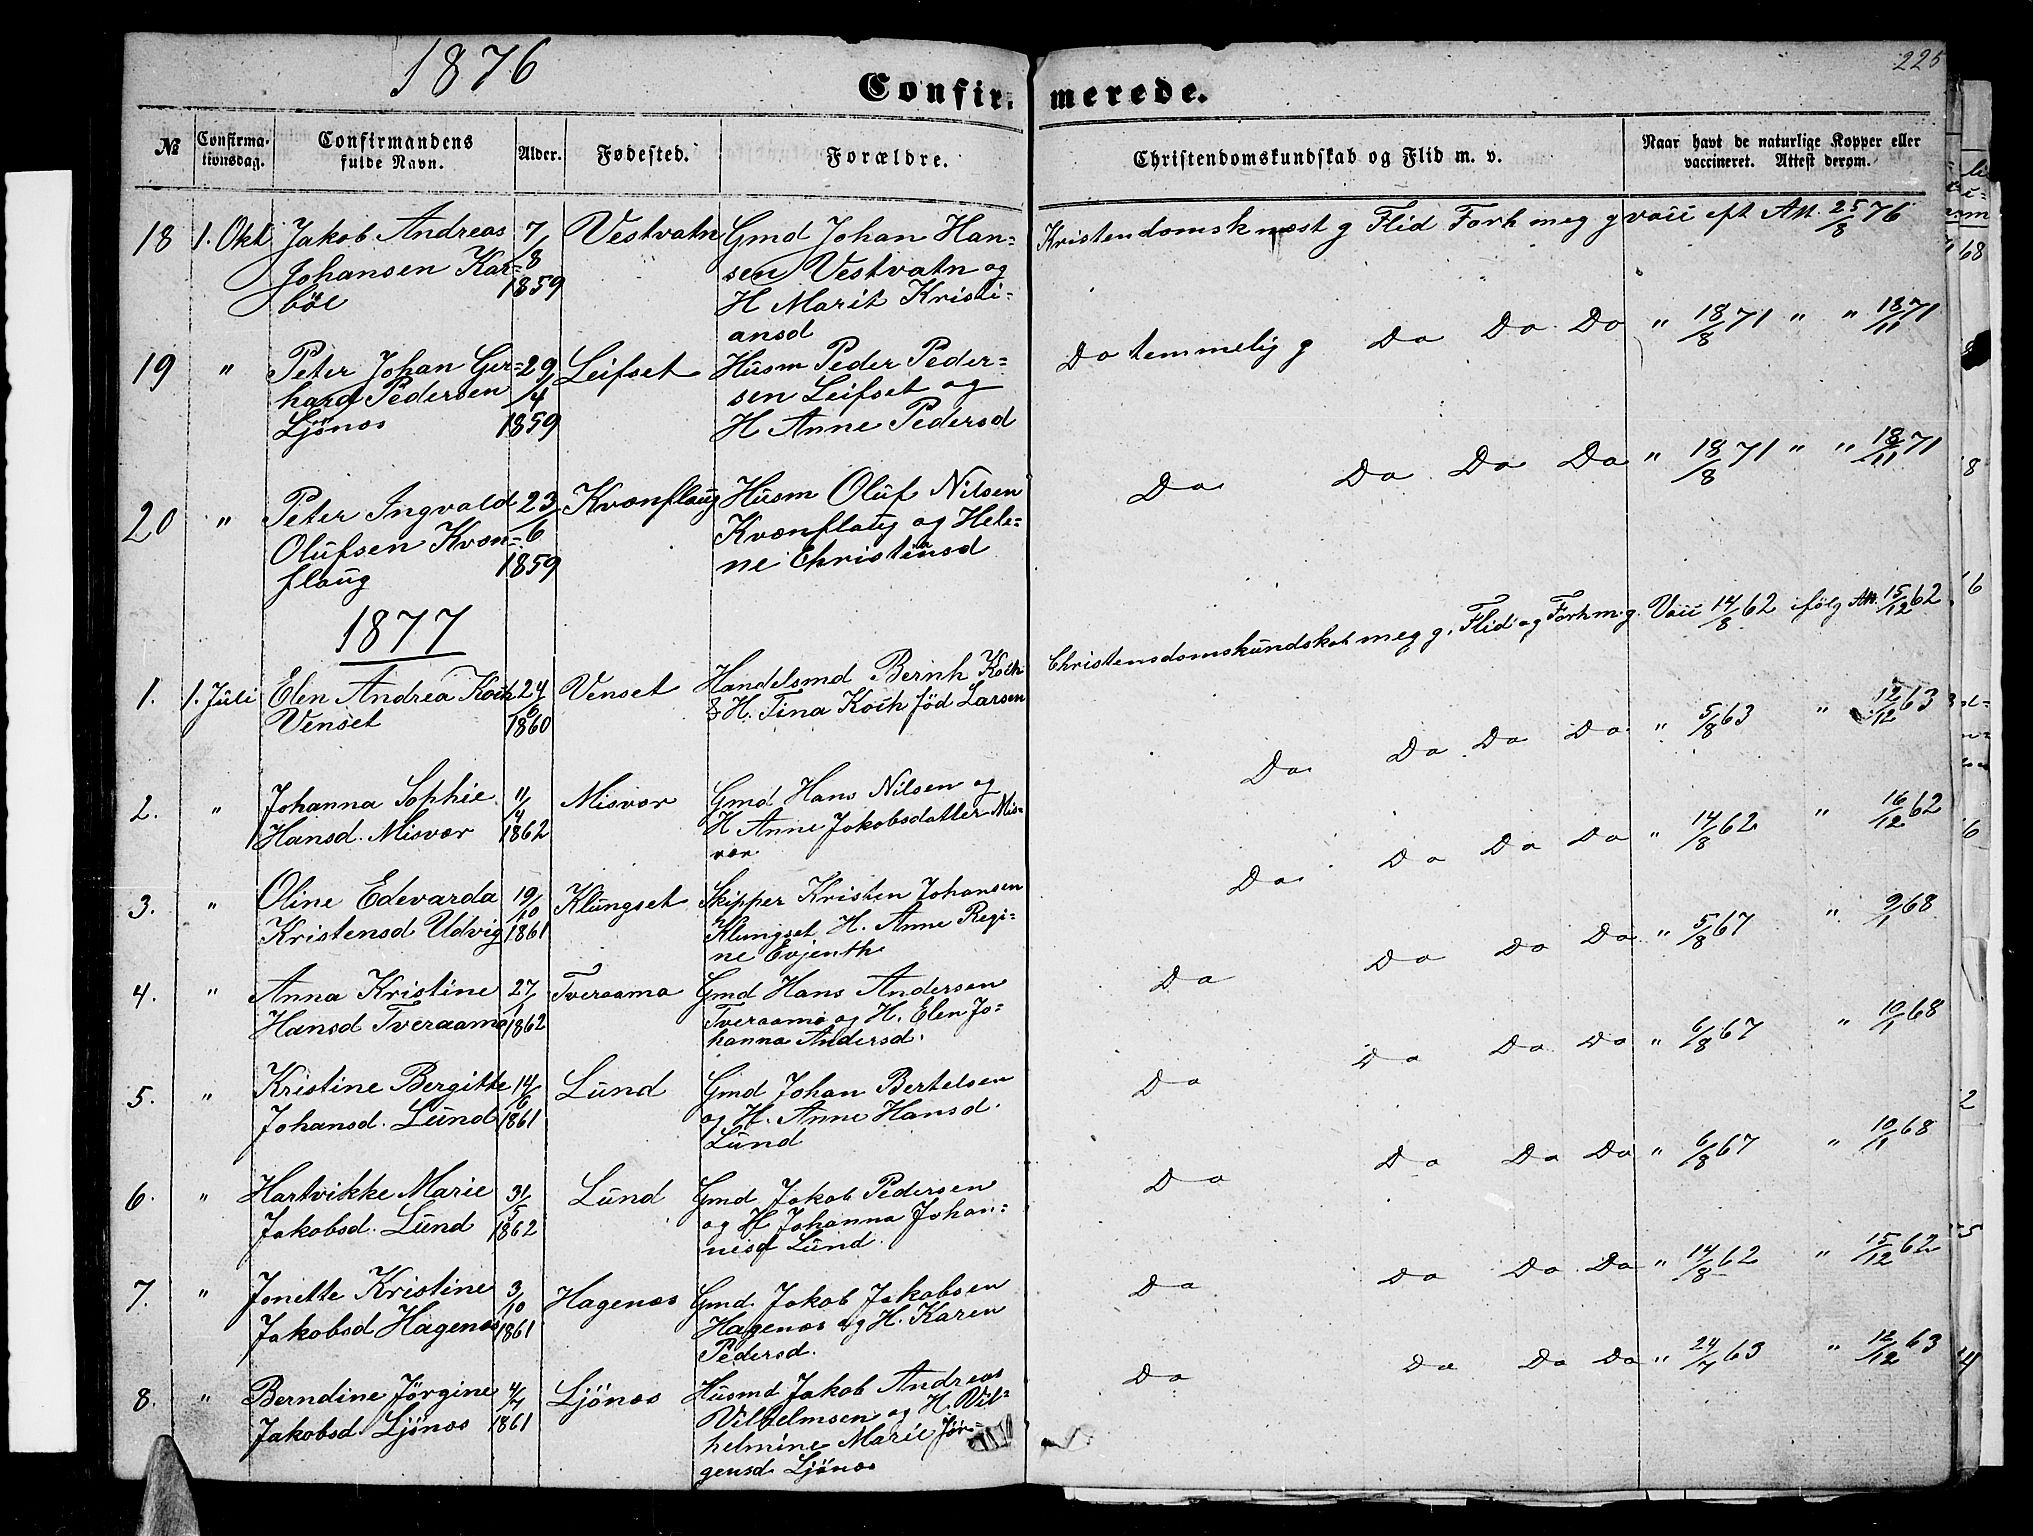 1876
225
Confir- merede.
№ Confirma-tionsdag. Confirmandens fulde Navn. Alder. Fødested. Forældre. Christendomskundskab og Flid m. v. Naar havt de naturlige Kopper eller vaccineret. Attest derom.
18 1. Okt Jakob Andreas 7/8 Vestvatn Gmd Johan Han=
Johansen Kar= 1859 sen Vestvatn og
böe H Marit Kristi=
ansd
Kristendomsk næst g Flid Forh meg g vacc eft Att. 25/8 76
19 " Peter Johan Ger= 29/4 Leifset Husm Peder Peder=
hard Pedersen 1859 sen Leifset og
Ljönes H Anne Pedersd
Do temmelig g Do Do Do " 18/8 71 " " 18/11 71
20 " Peter Ingvald 23/6 Kvænflaug Husm Oluf Nilsen
Olufsen Kvæn= 1859 Kvænflaug og Hele=
flaug ne Christensd
Do Do Do Do " 18/8 71 " " 18/11 71
1877
1. 1. Juli Elen Andrea Koch 24/6 Venset Handelsmd Bernh Koch
Venset 1860 & H. Tina Koch föd Larsen
Christensdomskundskab meg g. Flid og Forh m. g. Vacc 14/8 62 ifölg Att. 15/12 62
2. " Johanna Sophie 11/4 Misvær Gmd Hans Nilsen og
Hansd. Misvær 1862 H Anne Jakobsdatter Mis=
vær
Do Do Do Do " 5/8 63 " 12/12 63
3. " Oline Edevarda 19/10 Klungset Skipper Kristen Johansen
Kristensd Udvig 1861 Klungset H. Anne Regi=
ne Evjenth
Do Do Do Do " 14/8 62 " 16/12 62
4. " Anna Kristine 27/1 Tveraamo Gmd Hans Andersen
Hansd Tveraamo 1862 Tveraamo og H. Elen Jo=
hanna Andersd.
Do Do Do Do " 5/8 67 " 9/1 68
5. " Kristine Bergitte 14/6 Lund Gmd Johan Bertelsen
Johansd. Lund 1861 og H. Anne Hansd.
Lund
Do Do Do Do " 6/8 67 " 10/1 68
6. " Hartvikke Marie 31/5 Lund Gmd Jakob Pedersen
Jakobsd. Lund 1862 og H Johanna Johan=
nesd Lund.
Do Do Do Do " 6/8 67 " 10/1 68
7. " Jonette Kristine 3/10 Hagenæs Gmd. Jakob Jakobsen
Jakobsd Hagenæs 1861 Hagenæs og H. Karen
Pedersd.
Do Do Do Do " 14/8 62 " 15/12 62
8. " Berndine Jörgine 4/7 Ljönes Husmd Jakob Andreas
Jakobsd Ljönes 1861 Vilhelmsen og H. Vil=
helmine Marie Jör=
gensd Ljönes
Do Do Do Do " 24/7 63 " 12/12 63